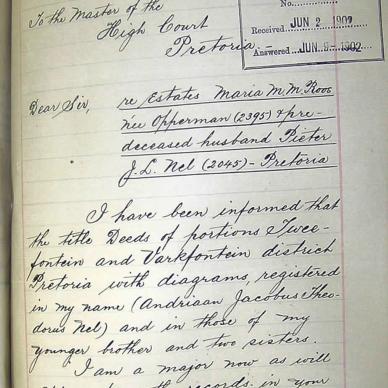 To the Master of the
High Court
Pretoria.
No.
Received JUN 2 1902
Answered JUN 9-1902
Dear Sir,
re Estates Maria M. M. Roos
née Opperman (2395) & pre-
deceased husband Pieter
J. L. Nel (2045) - Pretoria
I have been informed that
the title Deeds of portions Twee-
fontein and Varkfontein district
Pretoria with diagrams, registered
in my name (Andriaan Jacobus Theo-
dorus Nel) and in those of my
younger brother and two sisters.
I am a major now as will
the records in your